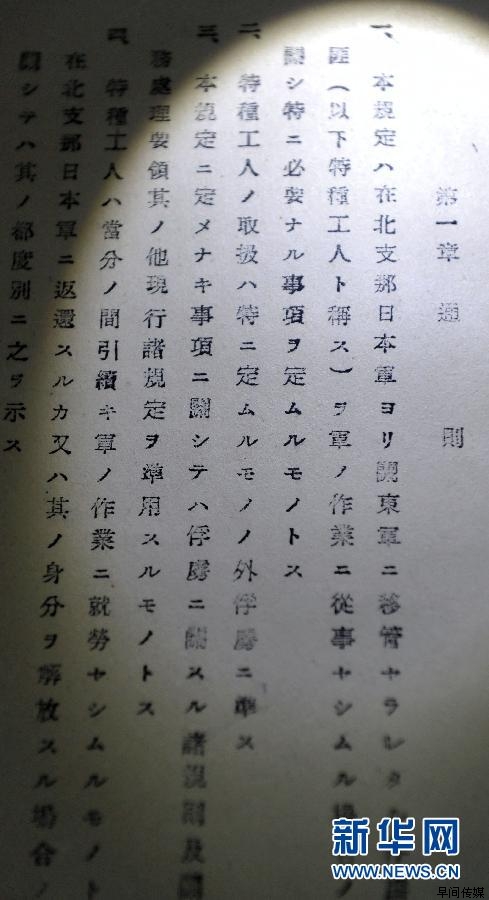 第一章 通 則
一、本規定ハ在北支那日本軍ヨリ關東軍ニ移管セラレタ
匪(以下特種工人ト稱ス)ヲ軍ノ作業ニ從事セシムル ノ
關シ特ニ必要ナル事項ヲ定ムルモノトス
二、特種工人ノ取扱ハ特ニ定ムルモノノ外俘虜ニ準ス
三、本規定ニ定メナキ事項ニ關シテハ俘虜ニ關スル諸規則及
務處理要領其ノ他現行諸規定ヲ準用スルモノトス
四、特種工人ハ當分ノ間引續キ軍ノ作業ニ就勞セシムルモノト
在北支那日本軍ニ返還スルカ又ハ其ノ身分ヲ解放スル場合ノ
關シテハ其ノ都度別ニ之ヲ示ス
新华网
WWW.NEWS.CN
早间传媒